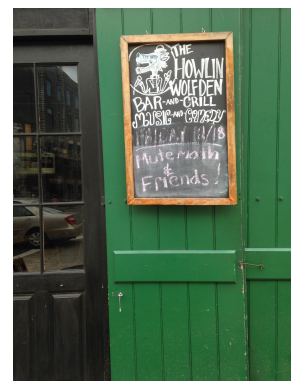 THE
HOWLIN
WOLF DEN
BAR-AND-GRILL
MUSIC AND COMEDY
Mutemath
&
Friends!